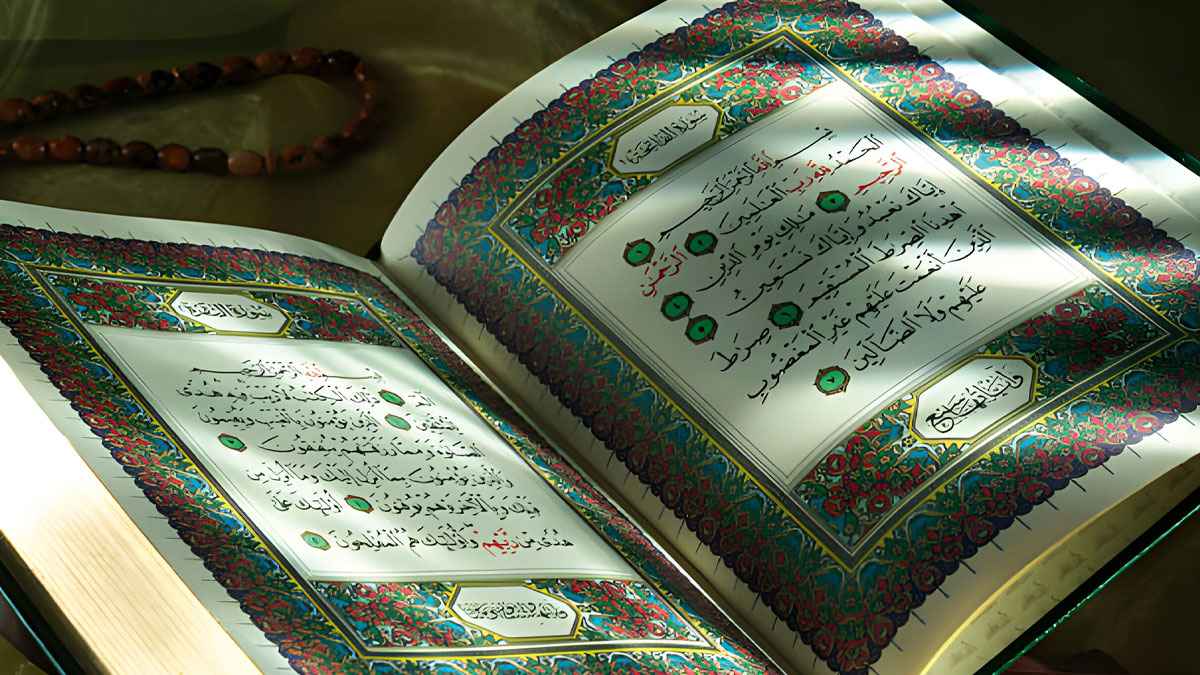 سورة الفاتحة
بسم الله الرحمن الرحيم ١
الحمد لله رب العلمين ٢ الرحمن
الرحيم ٣ ملك يوم الدين ٤
إياك نعبد وإياك نستعين ٥
اهدنا الصرط المستقيم ٦ صرط
الذين أنعمت عليهم غير المغضوب
عليهم ولا الضالين ٧
وآياتها سبع
سورة البقرة
بسم الله الرحمن الرحيم
الم ١ ذلك الكتب لا ريب فيه هدى
للمتقين ٢ الذين يؤمنون بالغيب ويقيمون
الصلوة ومما رزقنهم ينفقون ٣
والذين يؤمنون بما أنزل إليك وما أنزل من
قبلك وبالآخرة هم يوقنون ٤ أولئك على
هدى من ربهم وأولئك هم المفلحون ٥